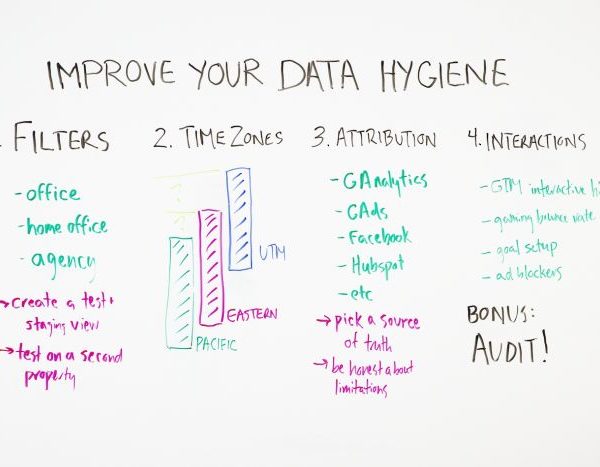 IMPROVE YOUR DATA HYGIENE
. FILTERS
- office
- home office
- agency
→ create a test +
staging view
→ test on a second
property
2. TIME ZONES
UTM
EASTERN
PACIFIC
3. ATTRIBUTION
- GAnalytics
- GAds
- Facebook
- Hubspot
- etc
→ pick a source
of truth
→ be honest about
limitations
4. INTERACTIONS
- GTM interactive hi
- gaming bounce rate
- goal setup
- ad blockers
BONUS:
AUDIT!